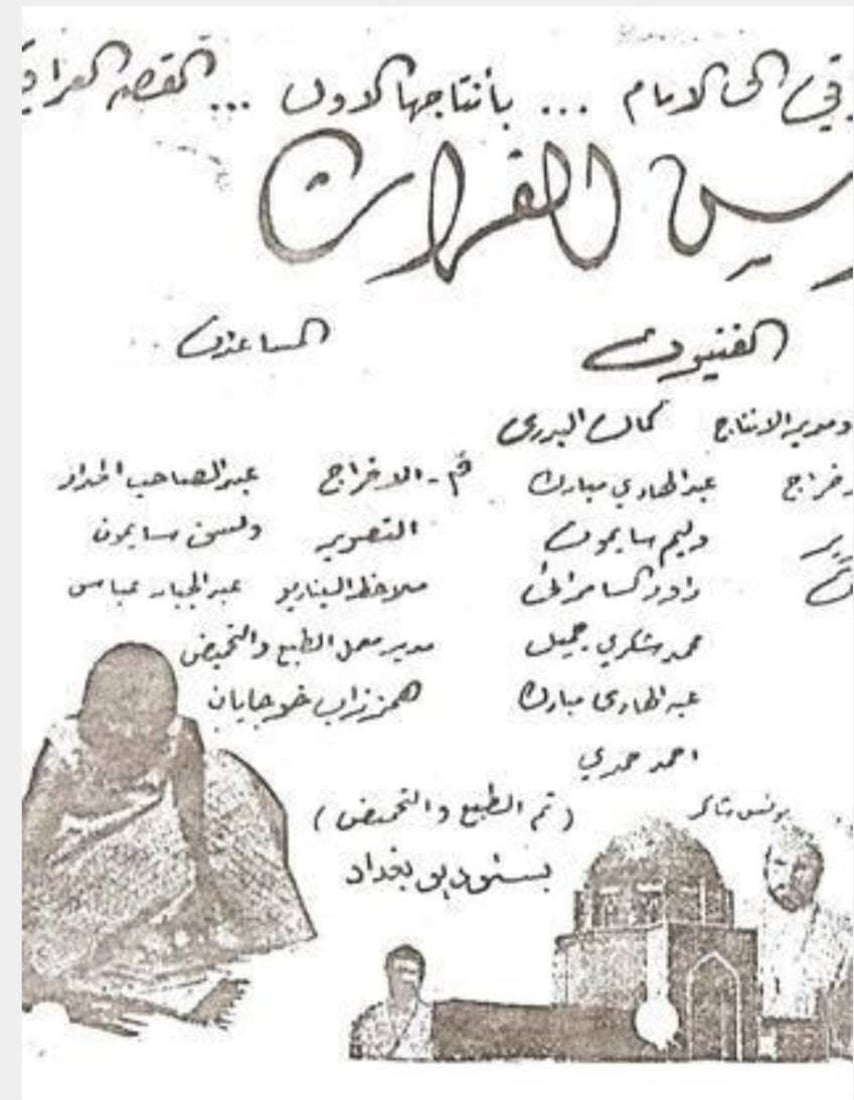 الى الامام ... بأنتاجها الاول ... القصه
الفرات
الفنيون المساعدون
ومدير الانتاج كمال البدري
عبد الهادي مبارك م - الاخراج عبد الصاحب الحداد
وليم سايمون التصوير ولسن سايمون
داود السامرائي ملاحظ السيناريو عبد الجبار عباس
محمد شكري جميل مدير معمل الطبع والتحميض
عبد الهادي مبارك خوجايان
احمد حمدي
يونس شاكر
( تم الطبع والتحميض )
بستوديو بغداد